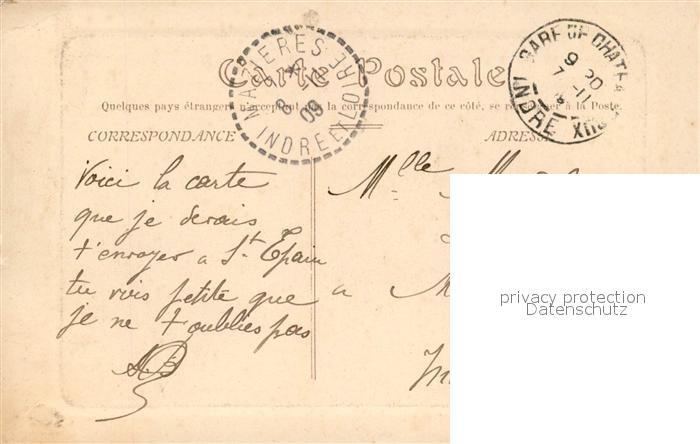 Carte Postale
Quelques pays étrangers n'acceptent pas la correspondance de ce côté, se renseigner à la Poste.
CORRESPONDANCE
ADRESSE
MAZIERES
8
09
INDRE ET LOIRE
GARE DE CHATE
9 20
7 - 11
INDRE
Voici la carte
que je devais
t'envoyer a St. Epain
tu vois petite que
je ne t oublies pas
Mlle
a
privacy protection
Datenschutz